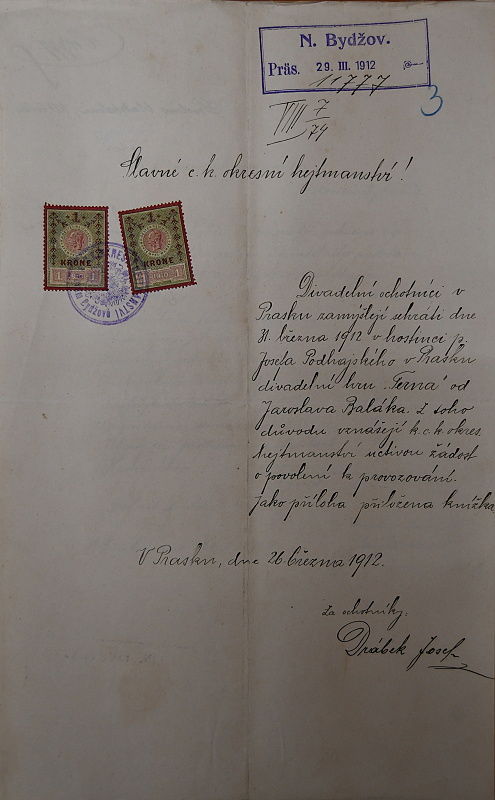 N. Bydžov.
Präs. 29. III. 1912
11777
3
VIII 7/74
Slavné c. k. okresní hejtmanství!
1
KRONE
1
1
KRONE
1
Divadelní ochotníci v
Prasku zamýšlejí sehráti dne
31. března 1912 v hostinci p.
Josefa Podhajského v Prasku
divadelní hru „Terna" od
Jaroslava Baláka. Z toho
důvodu vznášejí k. c. k. okres.
hejtmanství uctivou žádost
o povolení k provozování.
Jako příloha přiložena knížka.
V Prasku, dne 26. března 1912.
Za ochotníky:
Drábek Josef